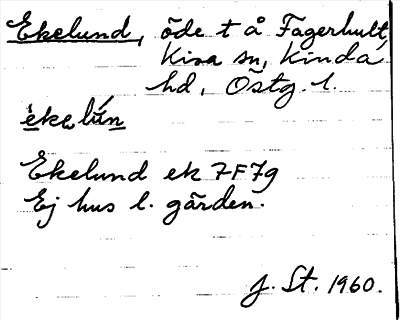 Ekelund, öde t å Fagerhult,
Kisa sn, Kinda
hd, Östg. l.
èkelún
Ekelund ek 7F7g
Ej hus l. gården.
J. St. 1960.